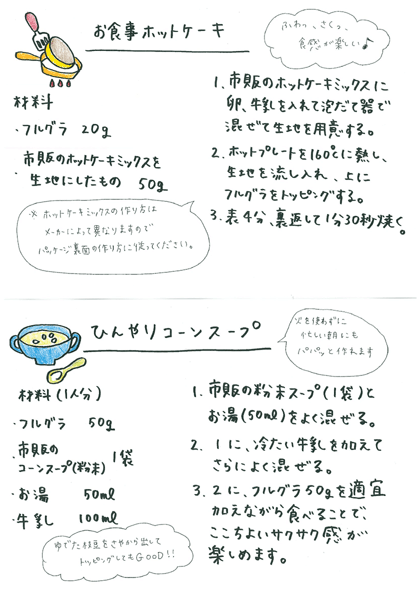 お食事ホットケーキ
ふわっ、さくっ、
食感が楽しい♪
材料
・フルグラ 20g
・市販のホットケーキミックスを
生地にしたもの 50g
※ ホットケーキミックスの作り方は
メーカーによって異なりますので
パッケージ裏面の作り方に従ってください。
1、市販のホットケーキミックスに
卵、牛乳を入れて泡だて器で
混ぜて生地を用意する。
2、ホットプレートを160℃に熱し、
生地を流し入れ、上に
フルグラをトッピングする。
3、表4分、裏返して1分30秒焼く。
ひんやりコーンスープ
火を使わずに
忙しい朝にも
パパッと作れます
材料(1人分)
・フルグラ 50g
・市販の
コーンスープ(粉末) 1袋
・お湯 50ml
・牛乳 100ml
ゆでた枝豆をさやから出して
トッピングしてもGOOD!!
1、市販の粉末スープ(1袋)と
お湯(50ml)をよく混ぜる。
2、1に、冷たい牛乳を加えて
さらによく混ぜる。
3、2に、フルグラ50gを適宜
加えながら食べることで、
ここちよいサクサク感が
楽しめます。